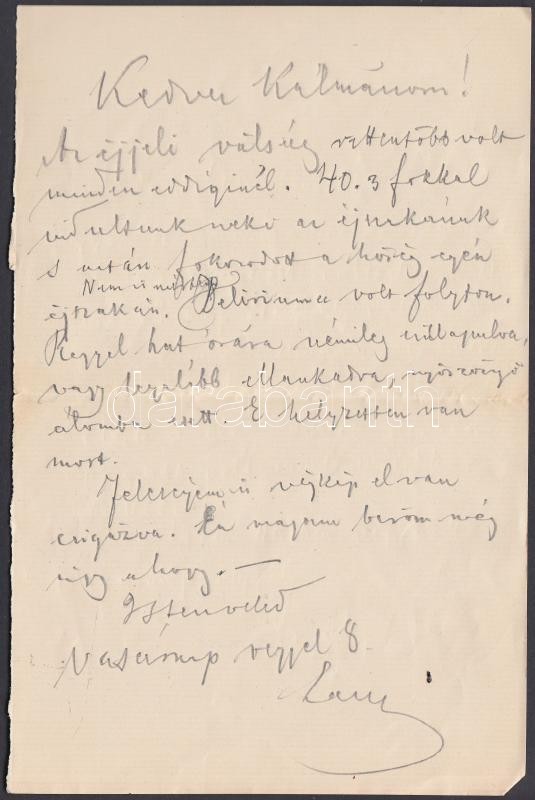 Kedves Kálmánom!
Az éjjeli válság rettentőbb volt
minden eddiginél. 40.3 fokkal
indultunk neki az éjszakának
s aztán fokozódott a hőség egész
éjszakán. Delíriuma volt folyton.
Reggel hat órára némileg
vagy legalább ellankadva, nyöszörgő
álomba esett. E helyzetben van
most.
Feleségem is végkép el van
csigázva. Én magam bírom még
úgy ahogy. —
Isten veled
Vasárnap reggel 8.
darabanth